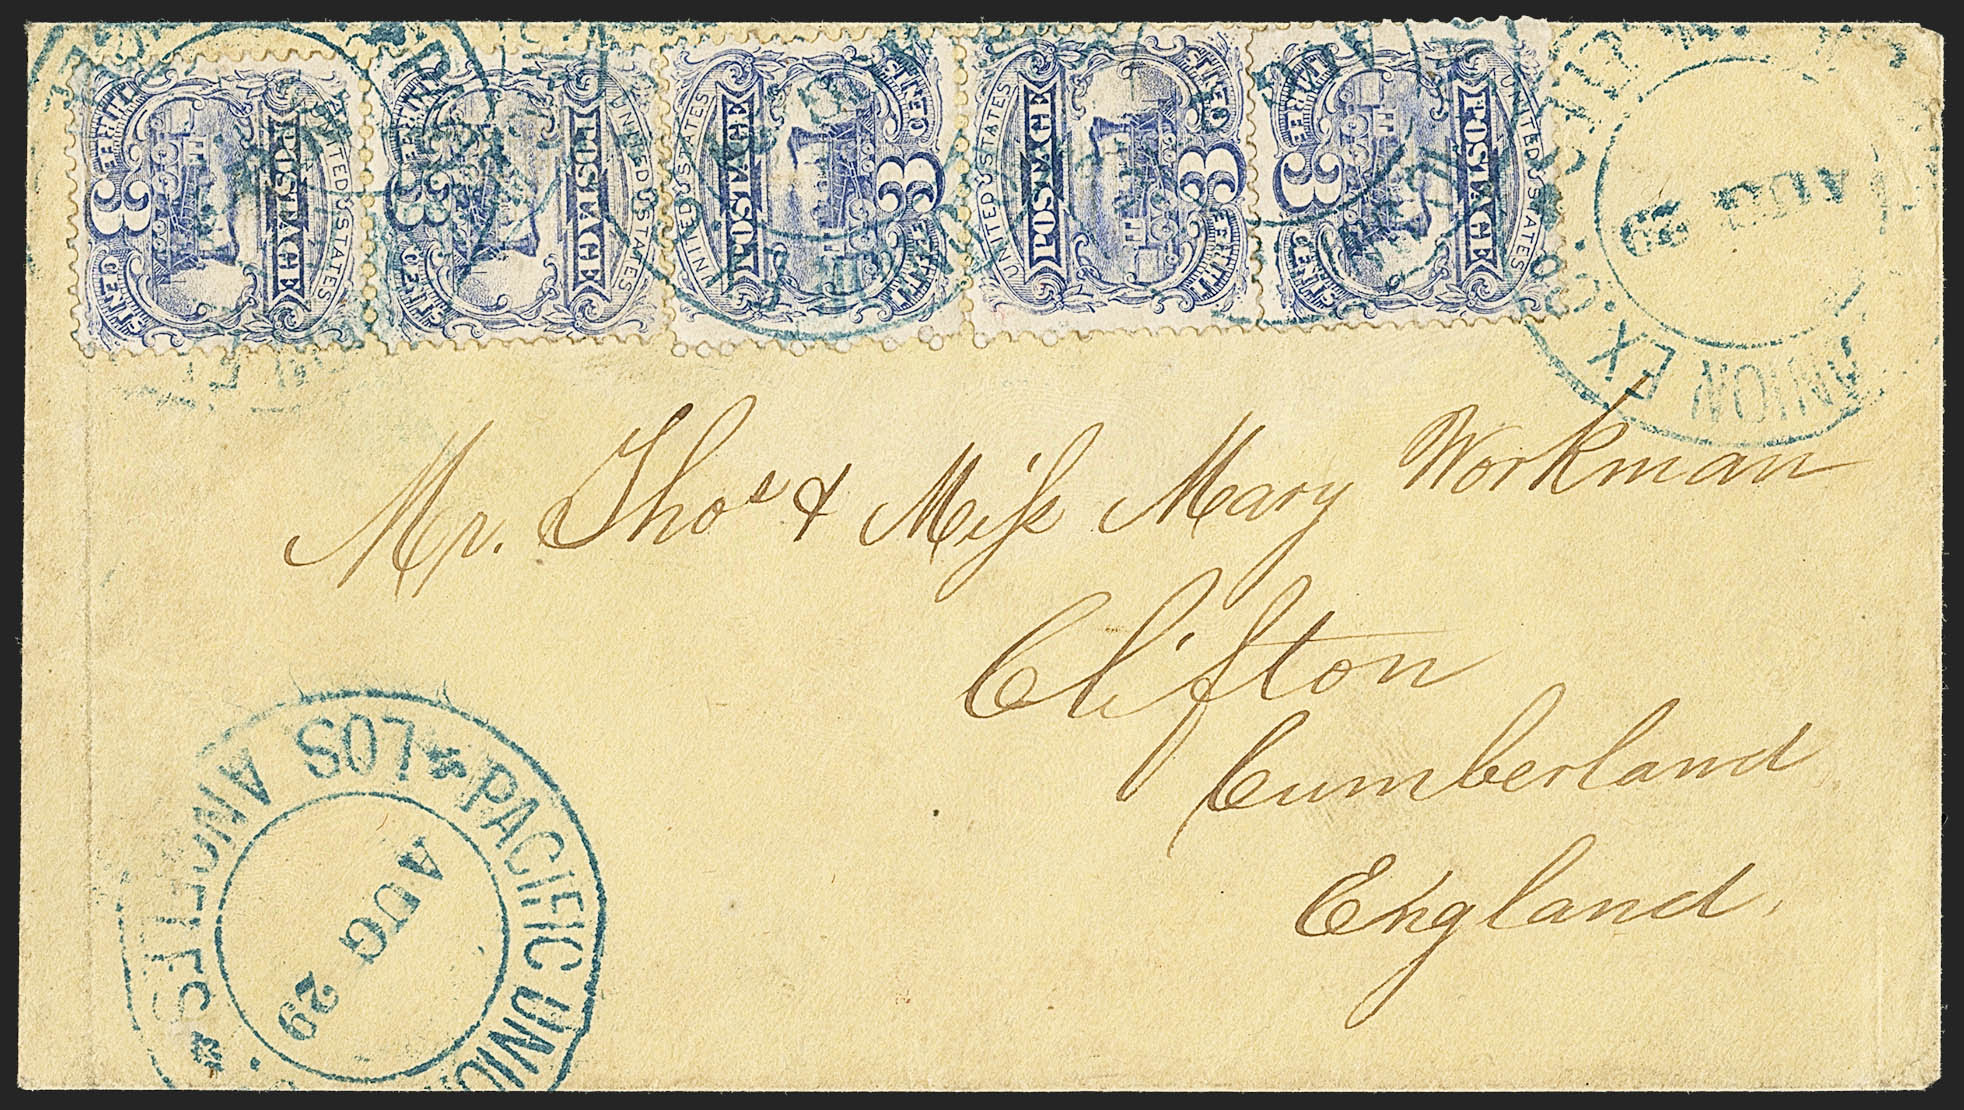 UNITED STATES POSTAGE THREE 3 CENTS
UNITED STATES POSTAGE THREE 3 CENTS
UNITED STATES POSTAGE THREE 3 CENTS
UNITED STATES POSTAGE THREE 3 CENTS
UNITED STATES POSTAGE THREE 3 CENTS
UNION EX. CO.
AUG 29
Mr. Thos & Miss Mary Workman
Clifton
Cumberland
England.
PACIFIC UNIO
LOS ANGELES
AUG 29